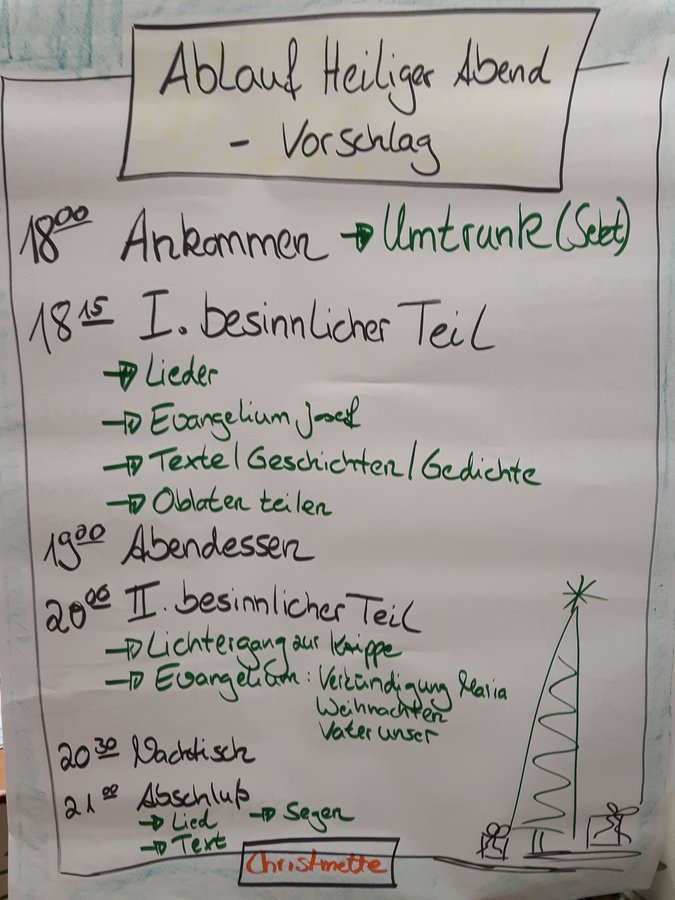 Ablauf Heiliger Abend
- Vorschlag
18 00 Ankommen → Umtrunk (Sekt)
18 15 I. besinnlicher Teil
→ Lieder
→ Evangelium Josef
→ Texte/Geschichten/Gedichte
→ Oblaten teilen
19 00 Abendessen
20 00 II. besinnlicher Teil
→ Lichtergang zur Krippe
→ Evangelium: Verkündigung Maria
Weihnachten
Vater unser
20 30 Nachtisch
21 00 Abschluß
→ Lied → Segen
→ Text
Christmette